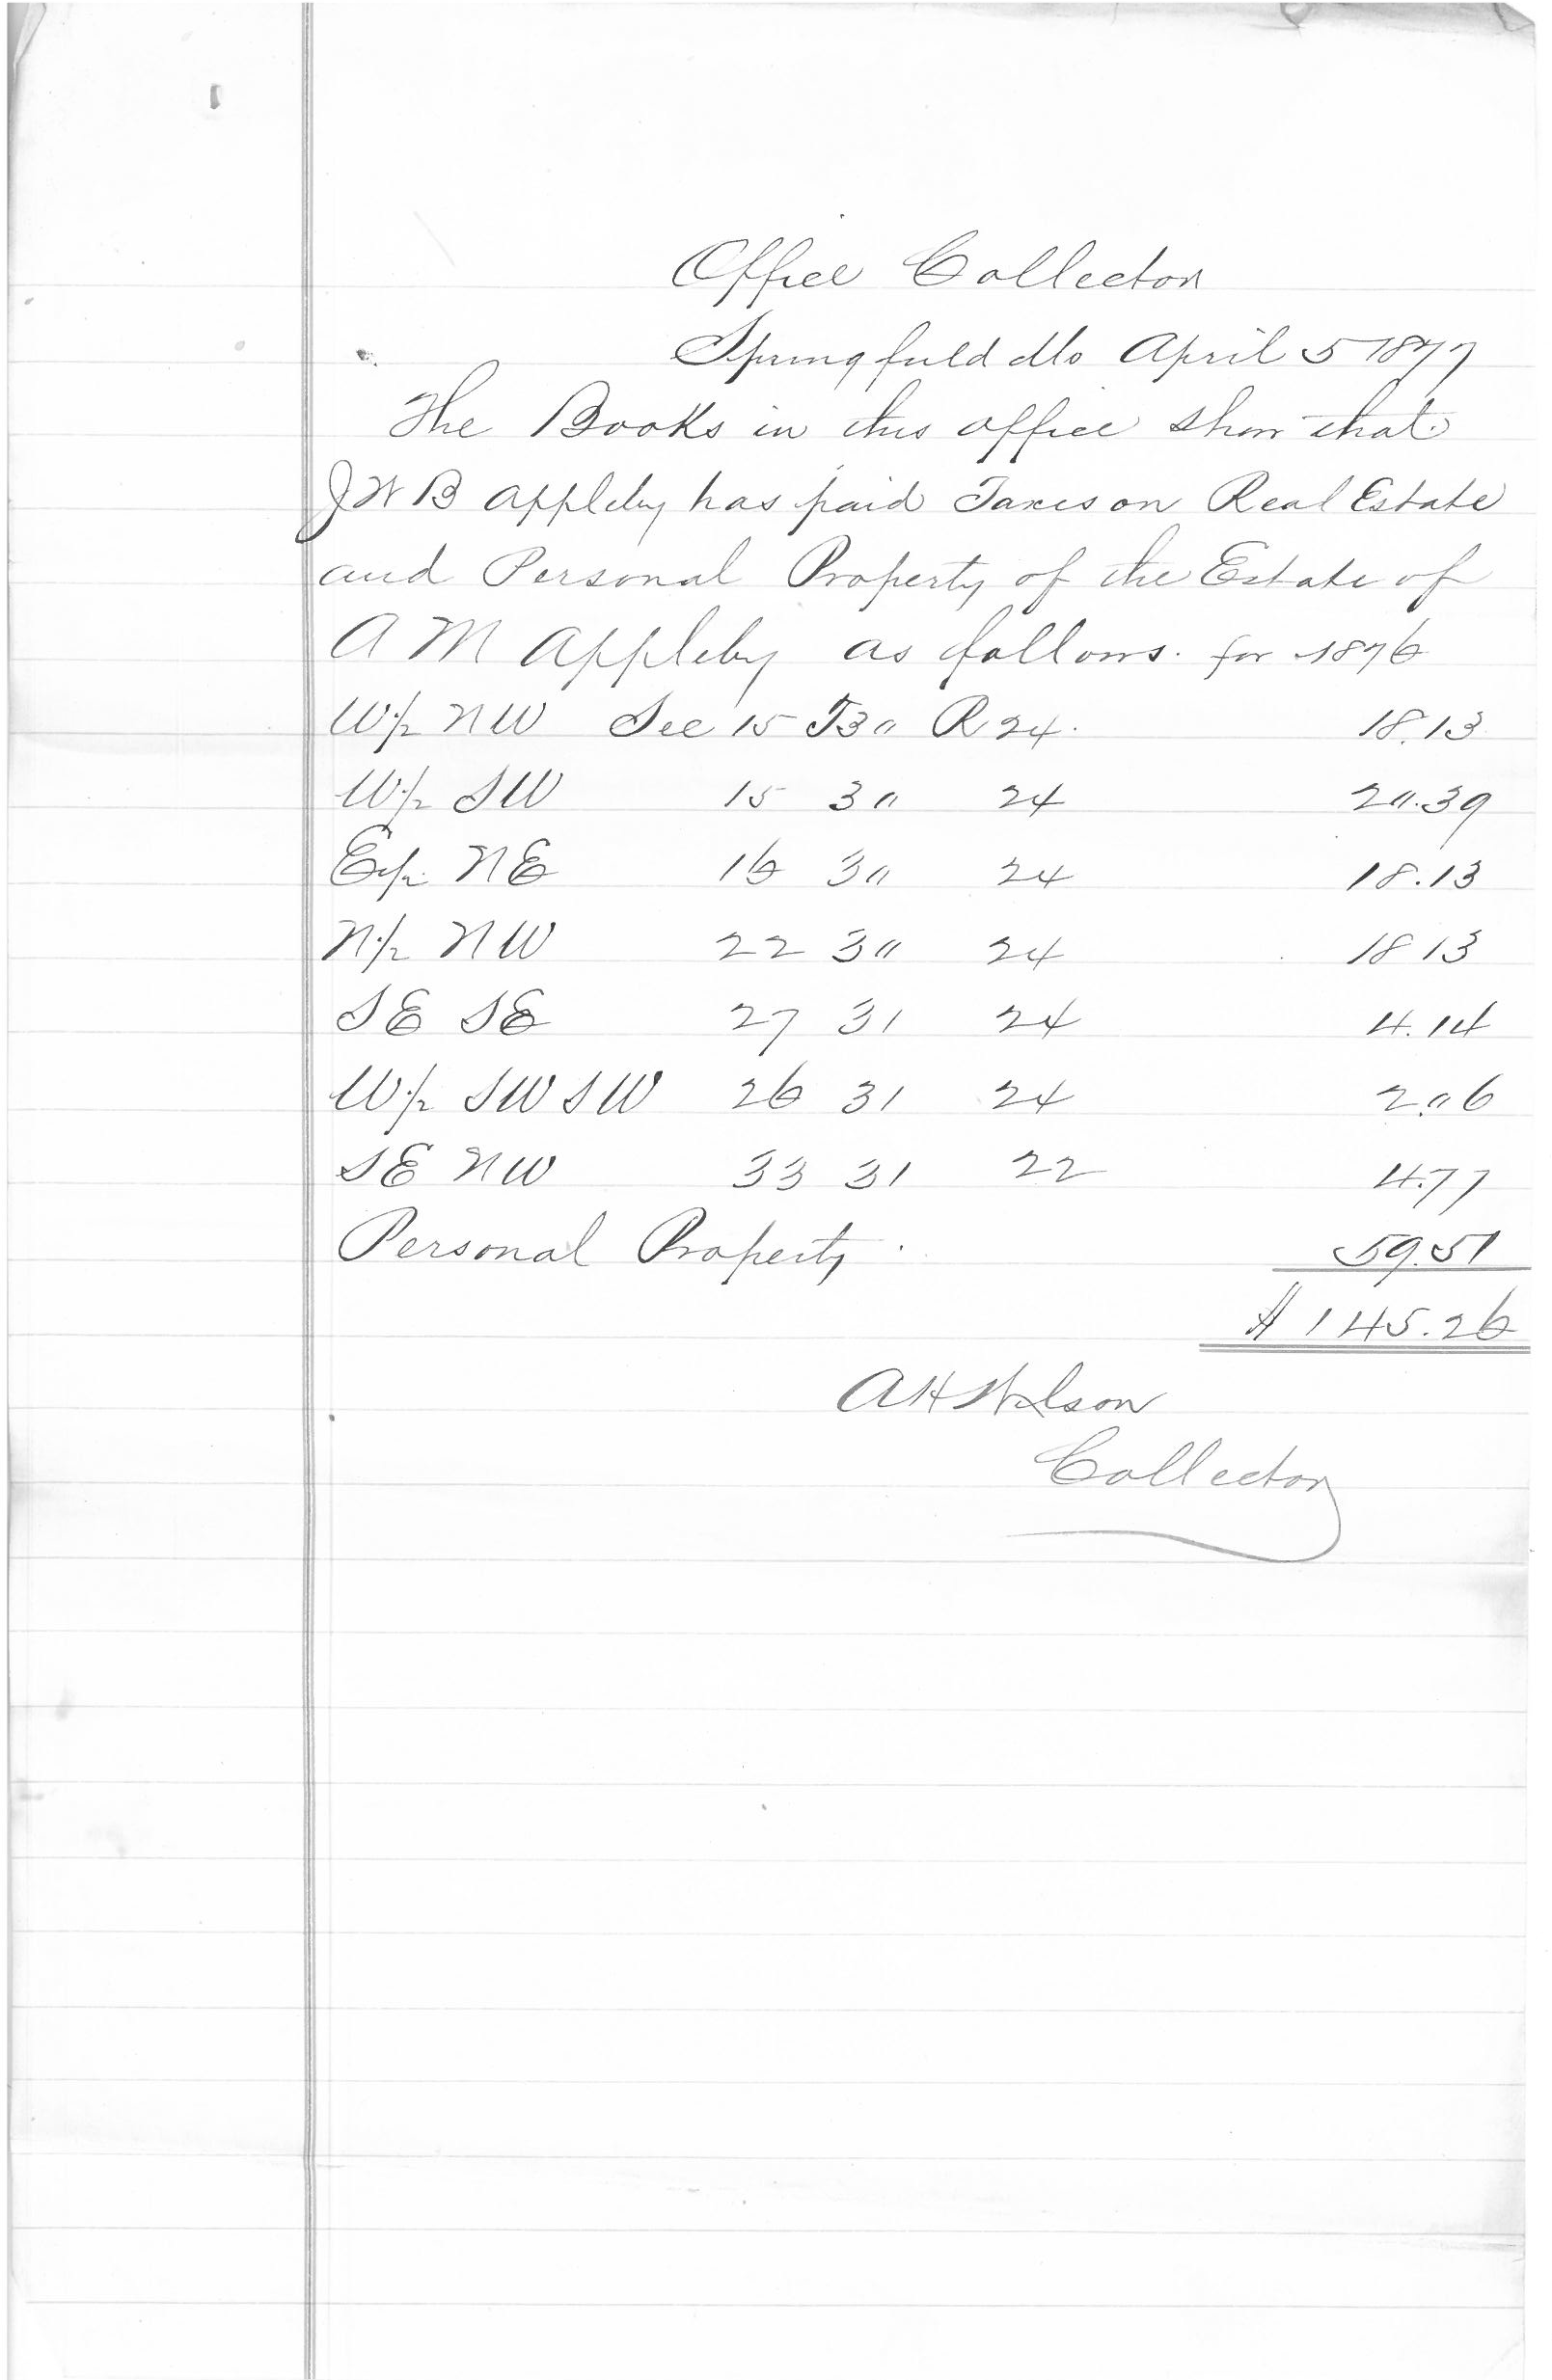 Office Collector
Springfield Mo April 5 1877
The Books in this office show that
J W B Appleby has paid Taxes on Real Estate
and Personal Property of the Estate of
A M Appleby as follows. for 1876
W½ NW Sec 15 T30 R 24. 18.13
W½ SW 15 30 24 20.39
E½ NE 16 30 24 18.13
N½ NW 22 30 24 18 13
SE SE 27 31 24 4.14
W½ SW SW 26 31 24 2.06
SE NW 33 31 22 4.77
Personal Property. 59.51
$ 145.26
A H Wilson
Collector